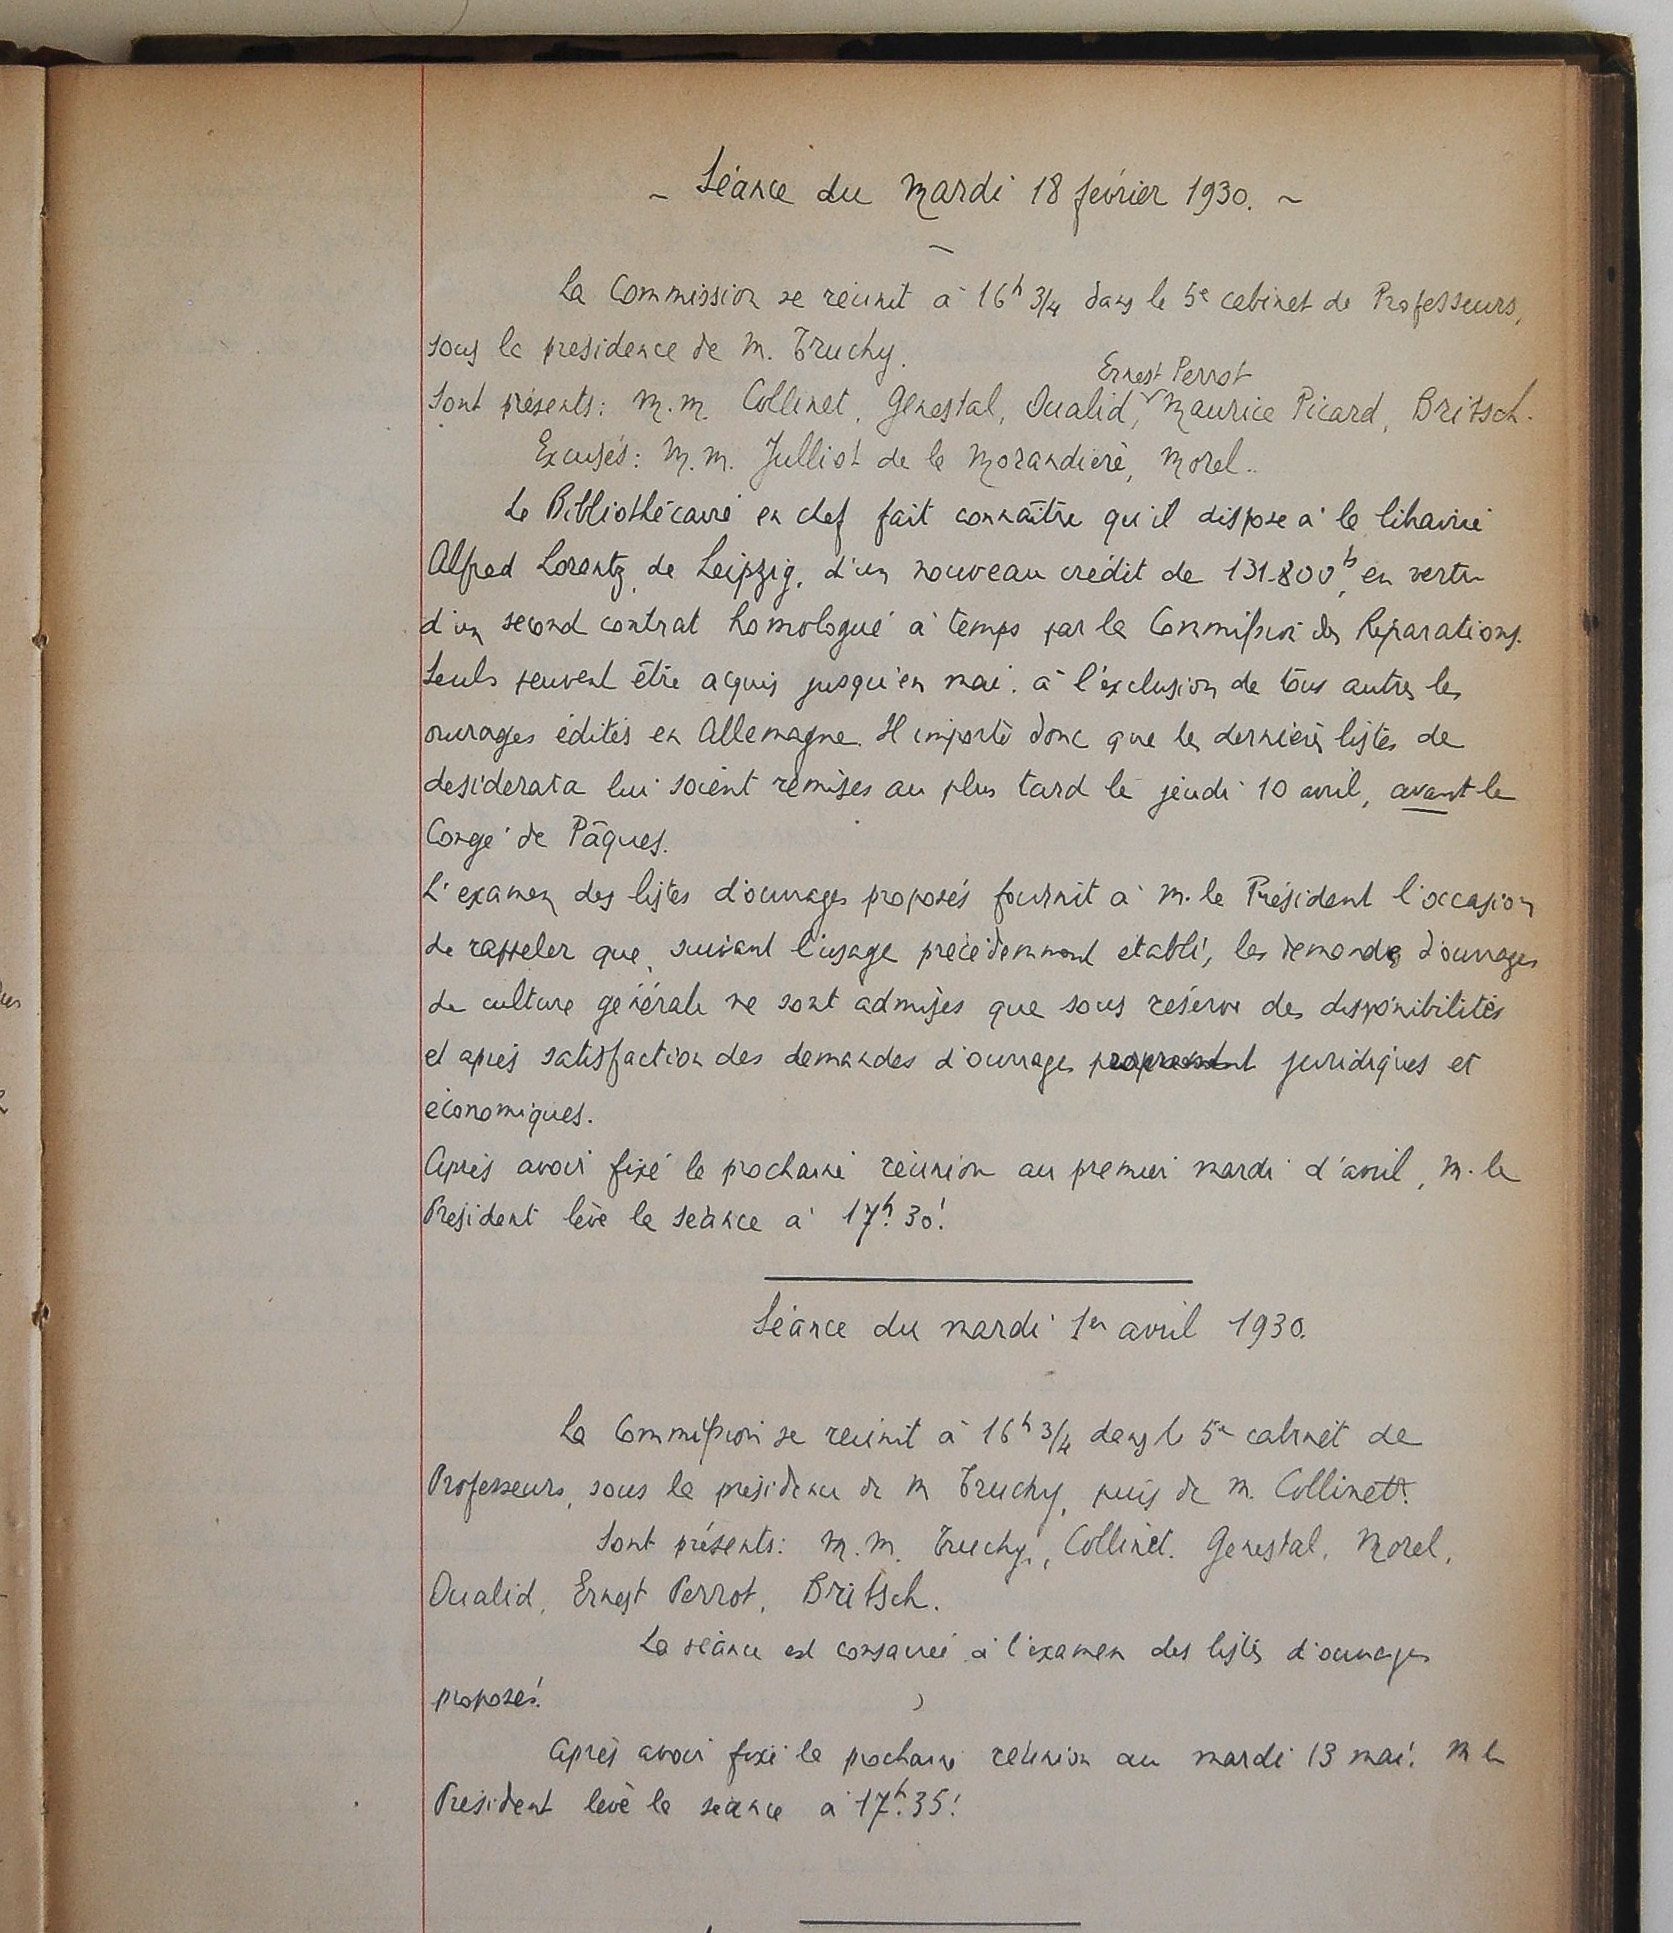 ~ Séance du Mardi 18 février 1930. ~
La Commission se réunit à 16h 3/4 dans le 5e cabinet de Professeurs,
sous la présidence de M. Truchy.
Ernest Perrot
Sont présents: M.M. Collinet, Génestal, Oualid, Maurice Picard, Britsch.
Excusés: M.M. Julliot de la Morandière, Morel..
Le Bibliothécaire en chef fait connaître qu'il dispose à la librairie
Alfred Lorentz, de Leipzig, d'un nouveau crédit de 131.800 fr, en vertu
d'un second contrat homologué à temps par la Commission des Réparations.
Seuls peuvent être acquis jusqu'en mai, à l'exclusion de tous autres les
ouvrages édités en Allemagne. Il importe donc que les dernières listes de
desiderata lui soient remises au plus tard le jeudi 10 avril, avant le
Congé de Pâques.
L'examen des listes d'ouvrages proposés fournit à M. le Président l'occasion
de rappeler que, suivant l'usage précédemment établi, les demandes d'ouvrages
de culture générale ne sont admises que sous réserve des disponibilités
et après satisfaction des demandes d'ouvrages proprement juridiques et
économiques.
Après avoir fixé la prochaine réunion au premier mardi d'avril, M. le
Président lève la séance à 17h. 30!
Séance du mardi 1er avril 1930.
La Commission se réunit à 16h 3/4 dans le 5e cabinet de
Professeurs, sous la présidence de M Truchy, puis de M. Collinet.
Sont présents: M.M. Truchy, Collinet. Génestal, Morel,
Oualid, Ernest Perrot, Britsch.
La séance est consacrée à l'examen des listes d'ouvrages
proposés.
Après avoir fixé la prochaine réunion au mardi 13 mai, M le
Président lève la séance à 17h.35!